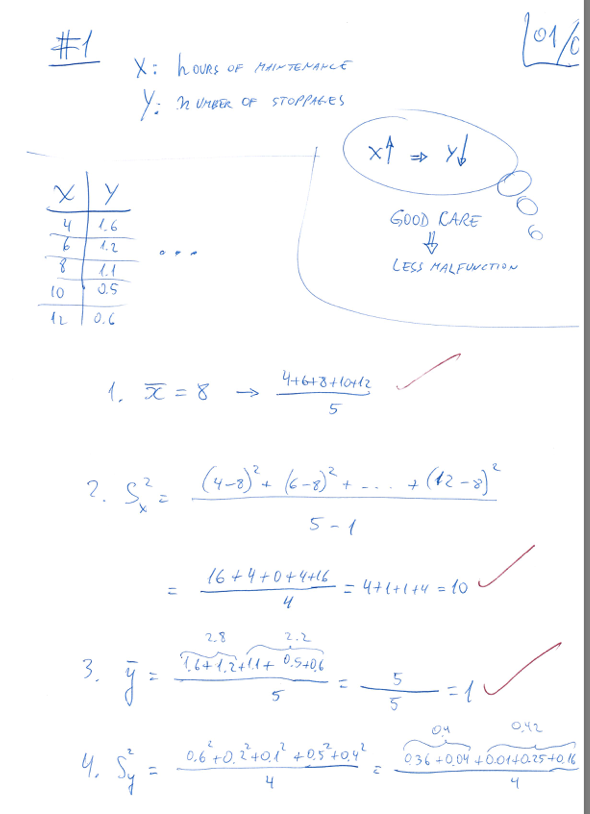 #1
01/0
X: HOURS OF MAINTENANCE
Y: NUMBER OF STOPPAGES
X↑ ⇒ Y↓
GOOD CARE
⇓
LESS MALFUNCTION
X | Y
4 | 1.6
6 | 1.2
8 | 1.1
10 | 0.5
12 | 0.6
...
1. x̄ = 8 → (4+6+8+10+12)/5 ✓
2. S²x = ((4-8)² + (6-8)² + .... + (12-8)²)/(5-1)
= (16+4+0+4+16)/4 = 4+1+1+4 = 10 ✓
2.8 2.2
3. ȳ = (1.6+1.2+1.1+0.5+0.6)/5 = 5/5 = 1 ✓
0.4 0.42
4. S²y = (0.6²+0.2²+0.1²+0.5²+0.4²)/4 = (0.36+0.04+0.01+0.25+0.16)/4